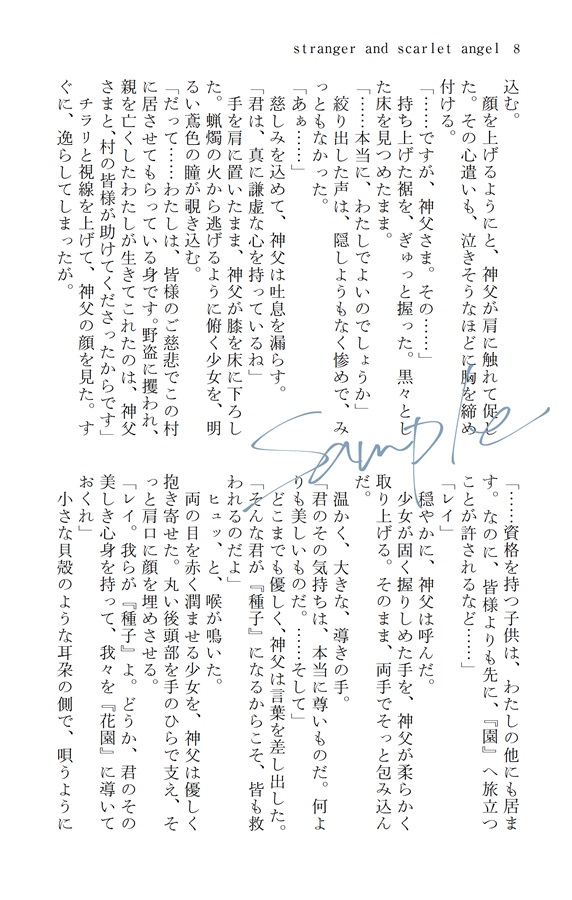 stranger and scarlet angel 8
込む。
　顔を上げるようにと、神父が肩に触れて促し
た。その心遣いも、泣きそうなほどに胸を締め
付ける。
「……ですが、神父さま。その……」
　持ち上げた裾を、ぎゅっと握った。黒々とし
た床を見つめたまま。
「……本当に、わたしでよいのでしょうか」
　絞り出した声は、隠しようもなく惨めで、み
っともなかった。
「あぁ……」
　慈しみを込めて、神父は吐息を漏らす。
「君は、真に謙虚な心を持っているね」
　手を肩に置いたまま、神父が膝を床に下ろし
た。蝋燭の火から逃げるように俯く少女を、明
るい鳶色の瞳が覗き込む。
「だって……わたしは、皆様のご慈悲でこの村
に居させてもらっている身です。野盗に攫われ、
親を亡くしたわたしが生きてこれたのは、神父
さまと、村の皆様が助けてくださったからです」
　チラリと視線を上げて、神父の顔を見た。す
ぐに、逸らしてしまったが。
「……資格を持つ子供は、わたしの他にも居ま
す。なのに、皆様よりも先に、『園』へ旅立つ
ことが許されるなど……」
「レイ」
　穏やかに、神父は呼んだ。
　少女が固く握りしめた手を、神父が柔らかく
取り上げる。そのまま、両手でそっと包み込ん
だ。
　温かく、大きな、導きの手。
「君のその気持ちは、本当に尊いものだ。何よ
りも美しいものだ。……そして」
　どこまでも優しく、神父は言葉を差し出した。
「そんな君が『種子』になるからこそ、皆も救
われるのだよ」
　ヒュッ、と、喉が鳴いた。
　両の目を赤く潤ませる少女を、神父は優しく
抱き寄せた。丸い後頭部を手のひらで支え、そ
っと肩口に顔を埋めさせる。
「レイ。我らが『種子』よ。どうか、君のその
美しき心身を持って、我々を『花園』に導いて
おくれ」
　小さな貝殻のような耳朶の側で、唄うように
Sample